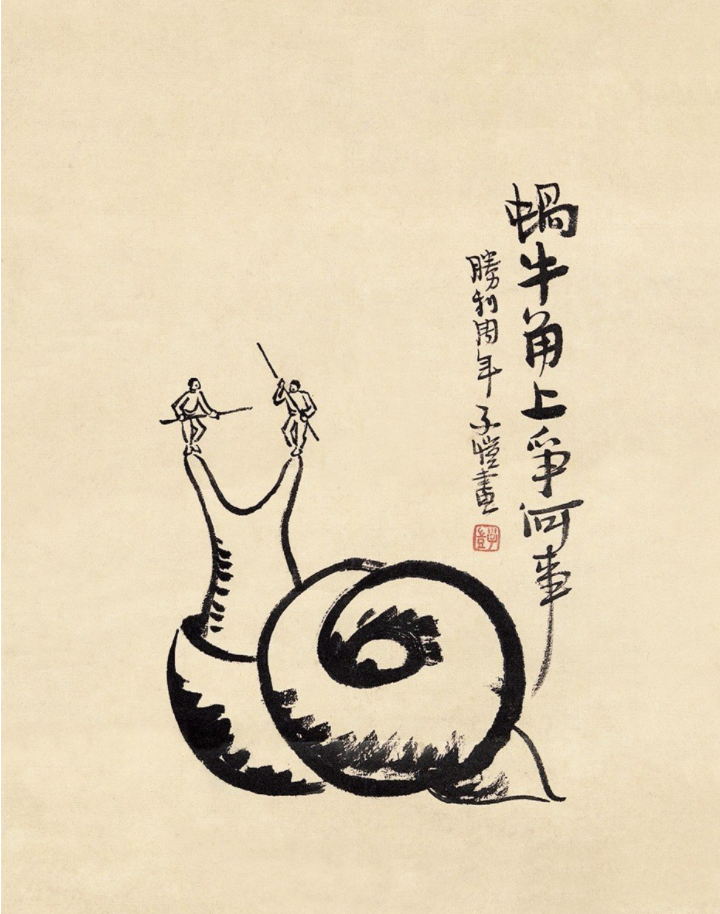 蝸牛角上爭何事
勝利周年 子愷畫